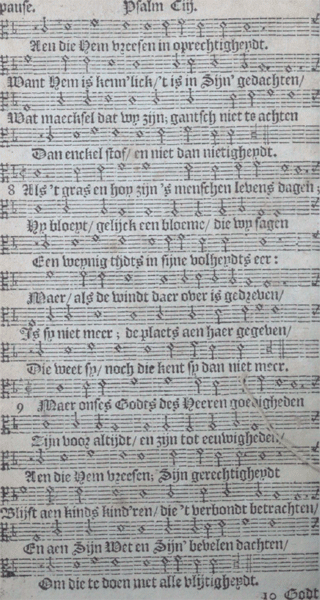 pause. Psalm Ciij.
Aen die Hem vreesen in oprechtigheydt.
Want Hem is kenn'lick/'t is in Sijn' gedachten/
Wat maecksel dat wy zijn; gantsch niet te achten
Dan enckel stof/ en niet dan nietigheydt.
8 Als 't gras en hoy zijn 's menschen levens dagen;
Hy bloeyt/ gelijck een bloeme/ die wy sagen
Een weynig tijdts in sijne volheydts eer:
Maer/ als de windt daer over is gedreven/
'Is sy niet meer; de plaets aen haer gegeven/
Die weet sy/ noch die kent sy dan niet meer.
9 Maer onses Godts des Heeren goedigheden
Zijn voor altijdt/ en zijn tot eeuwigheden/
Aen die Hem vreesen; Sijn gerechtigheydt
Blijft aen kinds kind'ren/ die 't verbondt betrachten/
En aen Sijn Wet en Sijn' bevelen dachten/
Om die te doen met alle vlijtigheydt.
10 Godt